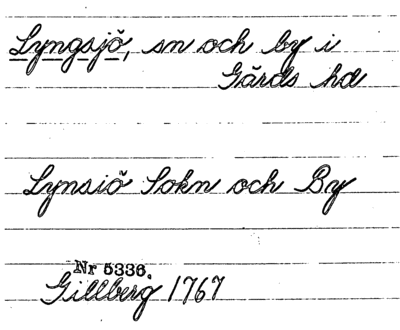 Lyngsjö, sn och by i
Gärds hd
Lynsiö Sokn och By
Nr 5336.
Gillberg 1767